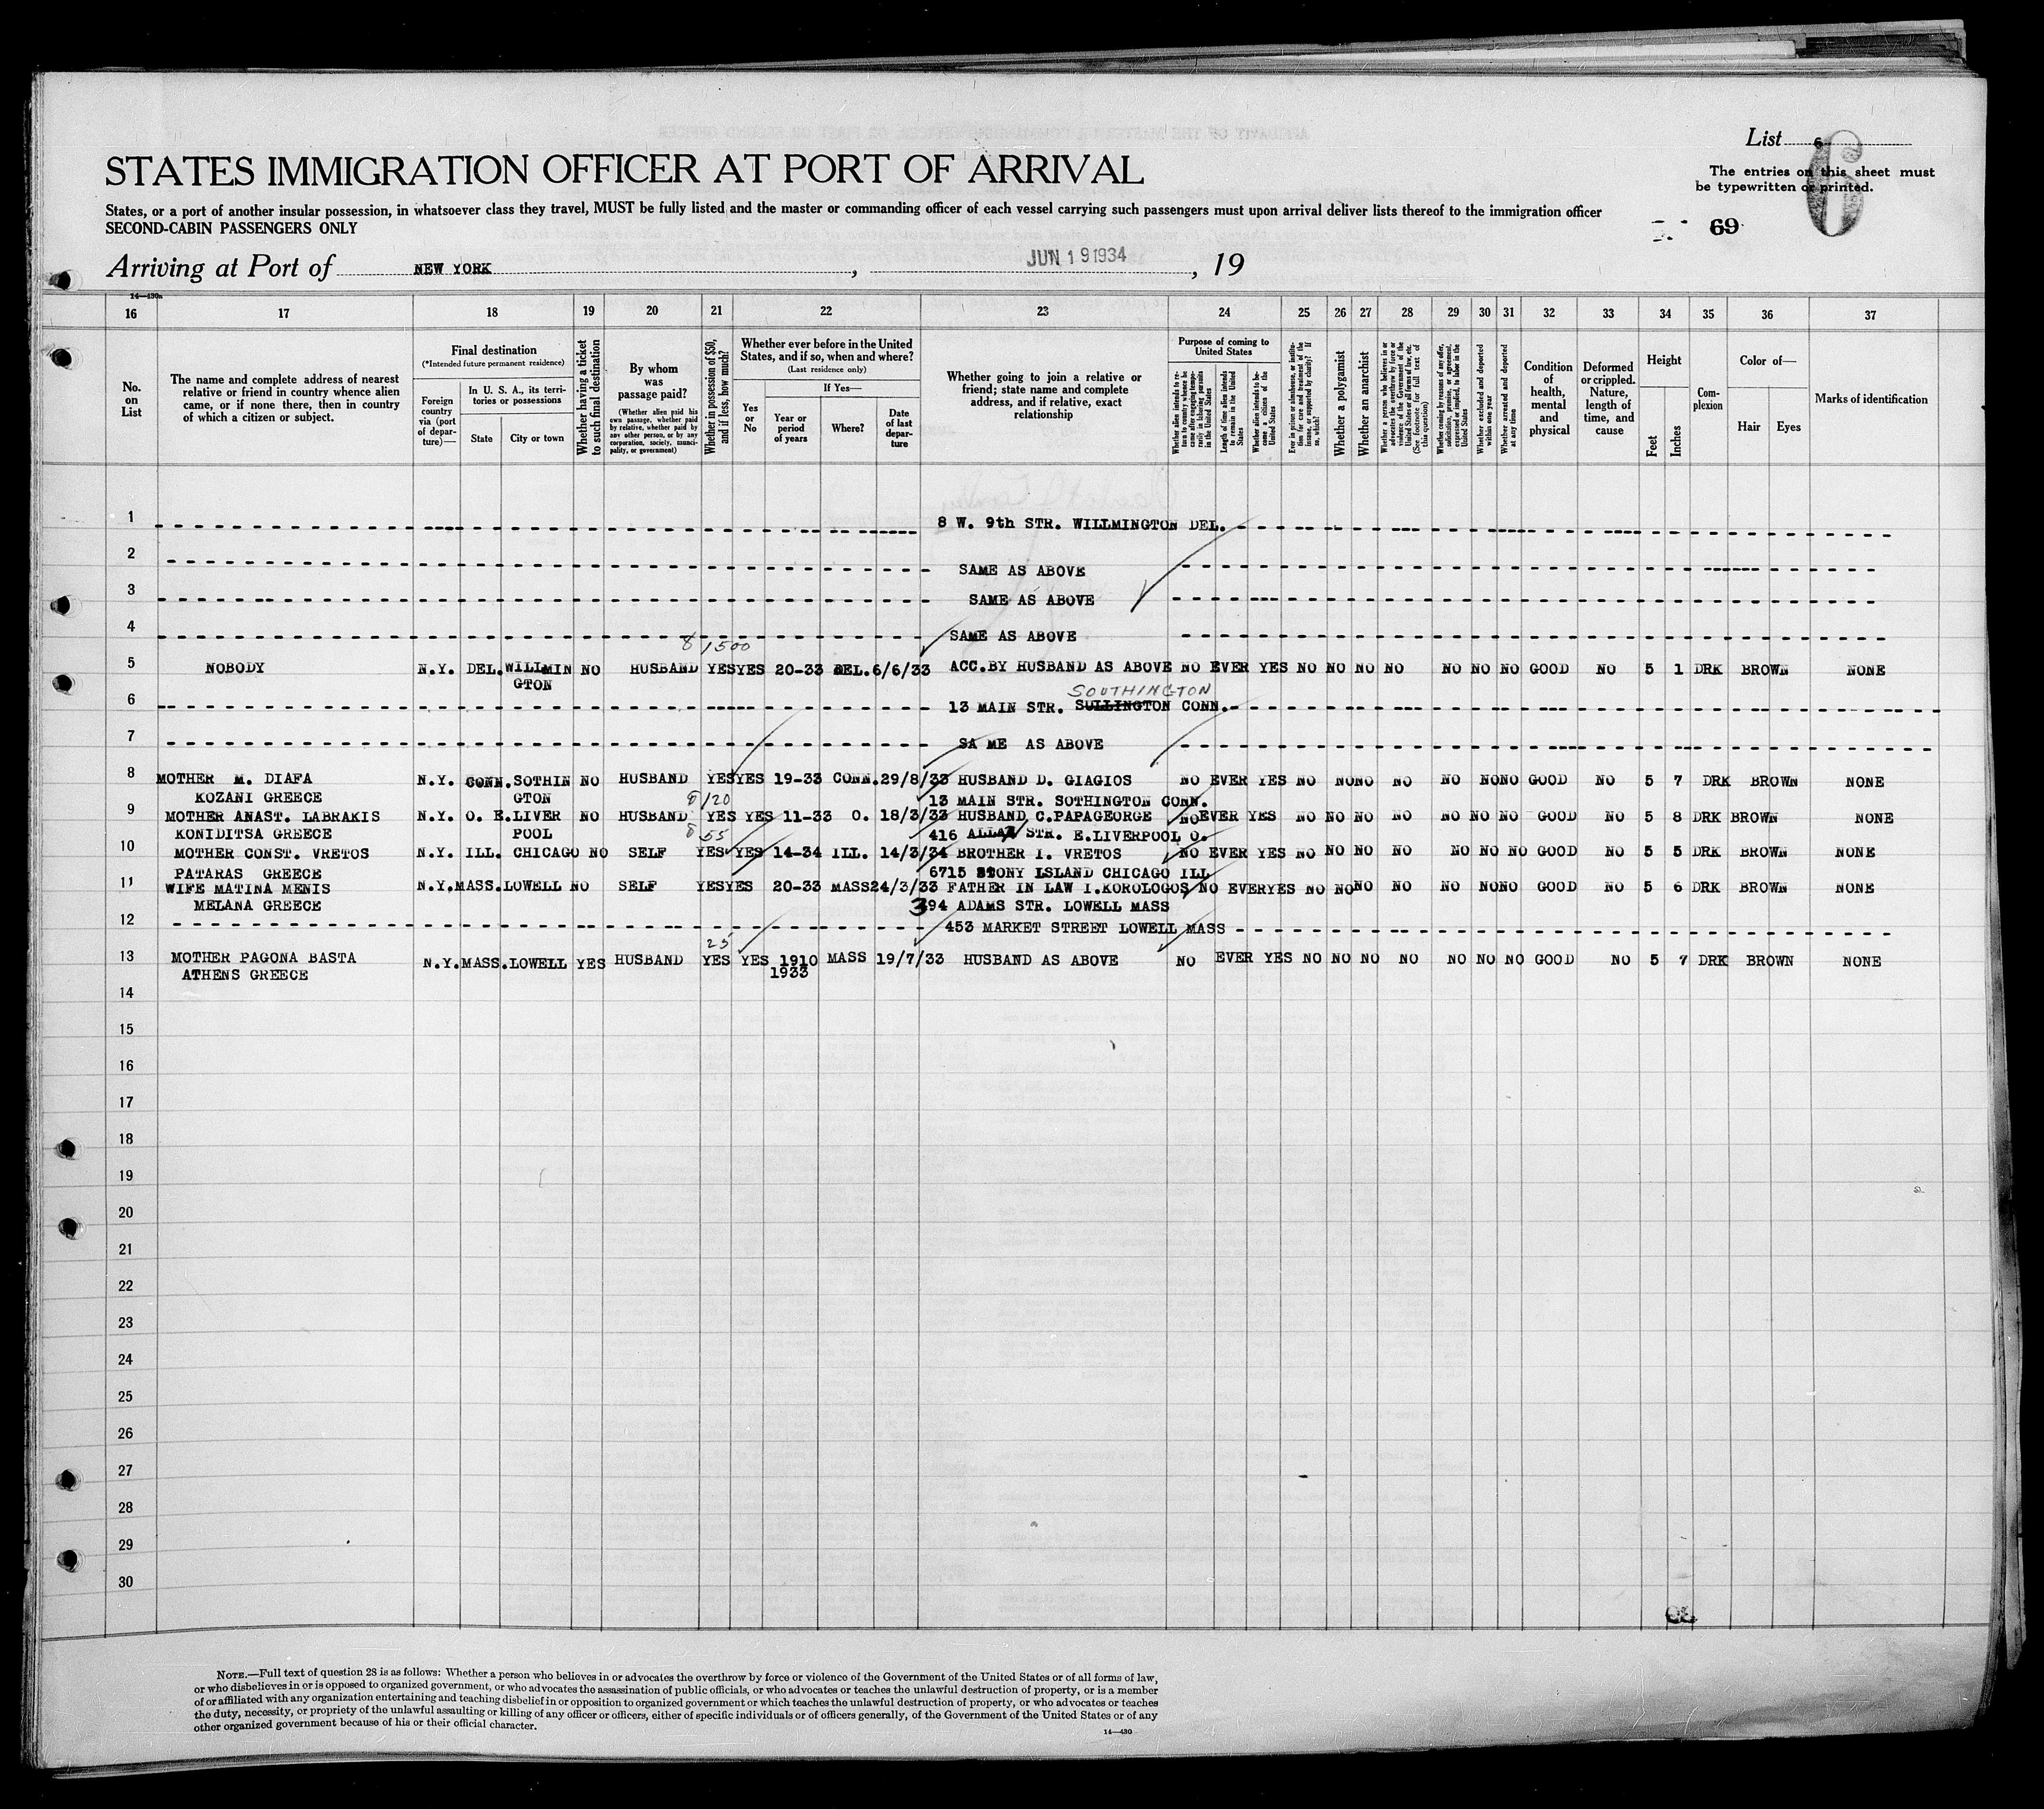 List 6
6
The entries on this sheet must
be typewritten or printed.
STATES IMMIGRATION OFFICER AT PORT OF ARRIVAL
States, or a port of another insular possession, in whatsoever class they travel, MUST be fully listed and the master or commanding officer of each vessel carrying such passengers must upon arrival deliver lists thereof to the immigration officer
SECOND-CABIN PASSENGERS ONLY
69
Arriving at Port of NEW YORK, JUN 19 1934, 19
14—430a
16 17 18 19 20 21 22 23 24 25 26 27 28 29 30 31 32 33 34 35 36 37
No. on List
The name and complete address of nearest relative or friend in country whence alien came, or if none there, then in country of which a citizen or subject.
Final destination
(*Intended future permanent residence)
Foreign country via (port of departure)—
In U. S. A., its territories or possessions
State
City or town
Whether having a ticket to such final destination
By whom was passage paid?
(Whether alien paid his own passage, whether paid by relative, whether paid by any other person, or by any corporation, society, municipality, or government)
Whether in possession of $50, and if less, how much?
Whether ever before in the United States, and if so, when and where?
(Last residence only)
Yes or No
If Yes—
Year or period of years
Where?
Date of last departure
Whether going to join a relative or friend; state name and complete address, and if relative, exact relationship
Purpose of coming to United States
Whether alien intends to return to country whence he came after engaging temporarily in laboring pursuits in the United States
Length of time alien intends to remain in the United States
Whether alien intends to become a citizen of the United States
Ever in prison or almshouse, or institution for care and treatment of the insane, or supported by charity? If so, which?
Whether a polygamist
Whether an anarchist
Whether a person who believes in or advocates the overthrow by force or violence of the Government of the United States or all forms of law, etc. (See footnote for full text of this question)
Whether coming by reasons of any offer, solicitation, promise, or agreement, expressed or implied, to labor in the United States
Whether excluded and deported within one year
Whether arrested and deported at any time
Condition of health, mental and physical
Deformed or crippled. Nature, length of time, and cause
Height
Feet
Inches
Complexion
Color of—
Hair
Eyes
Marks of identification
1 8 W. 9th STR. WILLMINGTON DEL.
2 SAME AS ABOVE
3 SAME AS ABOVE
4 SAME AS ABOVE
8 1500
5 NOBODY N.Y. DEL. WILLMIN NO HUSBAND YES YES 20-33 DEL. 6/6/33 ACC.BY HUSBAND AS ABOVE NO EVER YES NO NO NO NO NO NO NO GOOD NO 5 1 DRK BROWN NONE
GTON
SOUTHINGTON
6 13 MAIN STR. SULLINGTON CONN.
7 SA ME AS ABOVE
8 MOTHER M. DIAFA N.Y. CONN. SOTHIN NO HUSBAND YES YES 19-33 CONN. 29/8/33 HUSBAND D. GIAGIOS NO EVER YES NO NO NO NO NO NO NO GOOD NO 5 7 DRK BROWN NONE
KOZANI GREECE GTON 120 13 MAIN STR. SOTHINGTON CONN.
9 MOTHER ANAST. LABRAKIS N.Y. O. E.LIVER NO HUSBAND YES YES 11-33 O. 18/3/33 HUSBAND C.PAPAGEORGE NO EVER YES NO NO NO NO NO NO NO GOOD NO 5 8 DRK BROWN NONE
KONIDITSA GREECE POOL 55 416 STR. E.LIVERPOOL O.
10 MOTHER CONST. VRETOS N.Y. ILL. CHICAGO NO SELF YES YES 14-34 ILL. 14/3/34 BROTHER I. VRETOS NO EVER YES NO NO NO NO NO NO NO GOOD NO 5 5 DRK BROWN NONE
PATARAS GREECE 6715 STONY ISLAND CHICAGO ILL
11 WIFE MATINA MENIS N.Y. MASS. LOWELL NO SELF YES YES 20-33 MASS 24/3/33 FATHER IN LAW I.KOROLOGOS NO EVER YES NO NO NO NO NO NO NO GOOD NO 5 6 DRK BROWN NONE
MELANA GREECE 394 ADAMS STR. LOWELL MASS
12 453 MARKET STREET LOWELL MASS
25
13 MOTHER PAGONA BASTA N.Y. MASS. LOWELL YES HUSBAND YES YES 1910 MASS 19/7/33 HUSBAND AS ABOVE NO EVER YES NO NO NO NO NO NO NO GOOD NO 5 7 DRK BROWN NONE
ATHENS GREECE 1933
14
15
16
17
18
19
20
21
22
23
24
25
26
27
28
29
30
NOTE.—Full text of question 28 is as follows: Whether a person who believes in or advocates the overthrow by force or violence of the Government of the United States or of all forms of law,
or who disbelieves in or is opposed to organized government, or who advocates the assassination of public officials, or who advocates or teaches the unlawful destruction of property, or is a member
of or affiliated with any organization entertaining and teaching disbelief in or opposition to organized government or which teaches the unlawful destruction of property, or who advocates or teaches
the duty, necessity, or propriety of the unlawful assaulting or killing of any officer or officers, either of specific individuals or of officers generally, of the Government of the United States or of any
other organized government because of his or their official character.
14—430